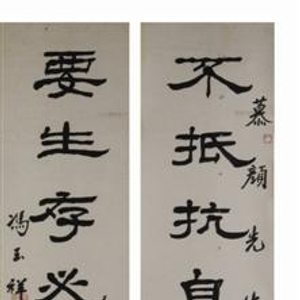 慕顏先
不抵抗自
要生存必
馮玉祥